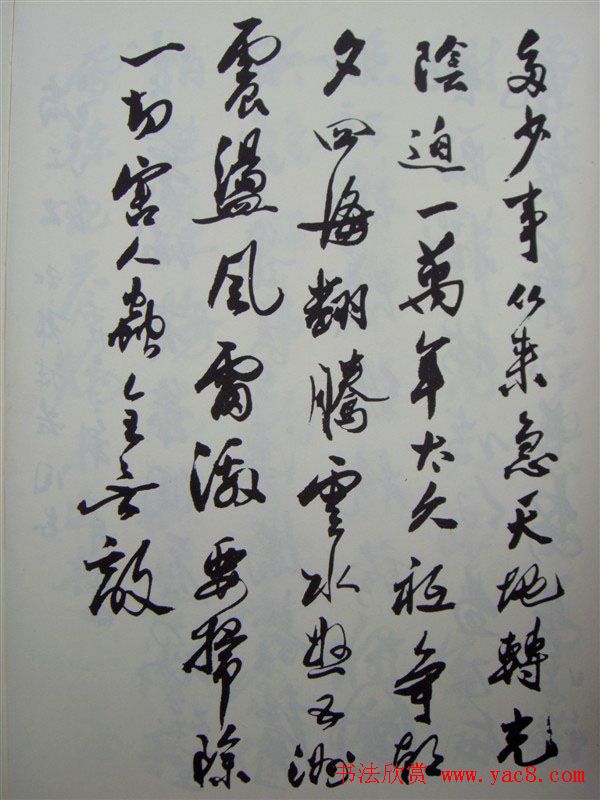 多少事从来急天地轉光
陰迫一萬年太久祗争朝
夕四海翻騰雲水怒五洲
震盪风雷激要掃除
一切害人蟲全无敌
书法欣赏 www.yac8.com